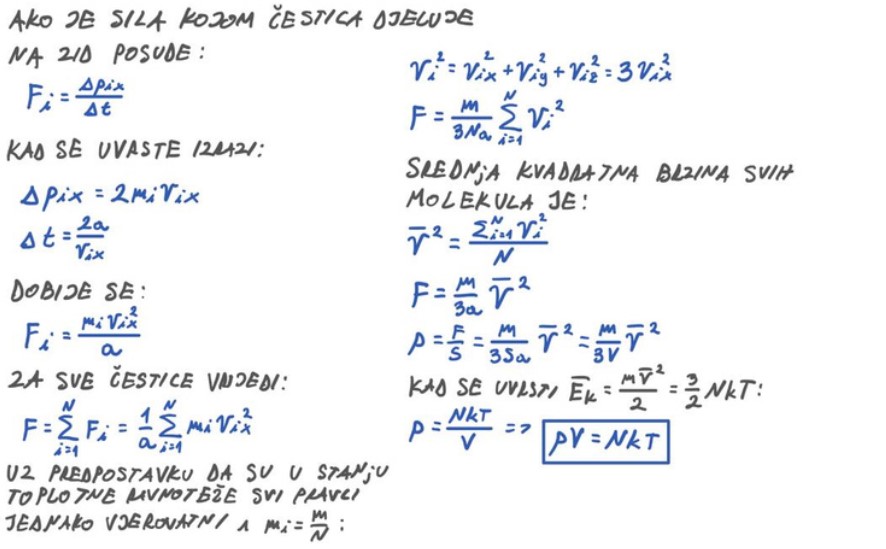 AKO JE SILA KOJOM ČESTICA DJELUJE
NA ZID POSUDE:
F_i = Δp_ix / Δt
KAD SE UVRSTE IZRAZI:
Δp_ix = 2m_i v_ix
Δt = 2a / v_ix
DOBIJE SE:
F_i = m_i v_ix² / a
ZA SVE ČESTICE VRIJEDI:
F = Σ_{i=1}^{N} F_i = 1/a Σ_{i=1}^{N} m_i v_ix²
UZ PREDPOSTAVKU DA SU U STANJU
TOPLOTNE RAVNOTEŽE SVI PRAVCI
JEDNAKO VJEROVATNI A m_i = m/N :
v_i² = v_ix² + v_iy² + v_iz² = 3v_ix²
F = m/3Na Σ_{i=1}^{N} v_i²
SREDNJA KVADRATNA BRZINA SVIH
MOLEKULA JE:
v̄² = Σ_{i=1}^{N} v_i² / N
F = m/3a v̄²
p = F/S = m/3Sa v̄² = m/3V v̄²
KAD SE UVRSTI Ē_k = mv̄²/2 = 3/2 NkT:
p = NkT/V => pV = NkT